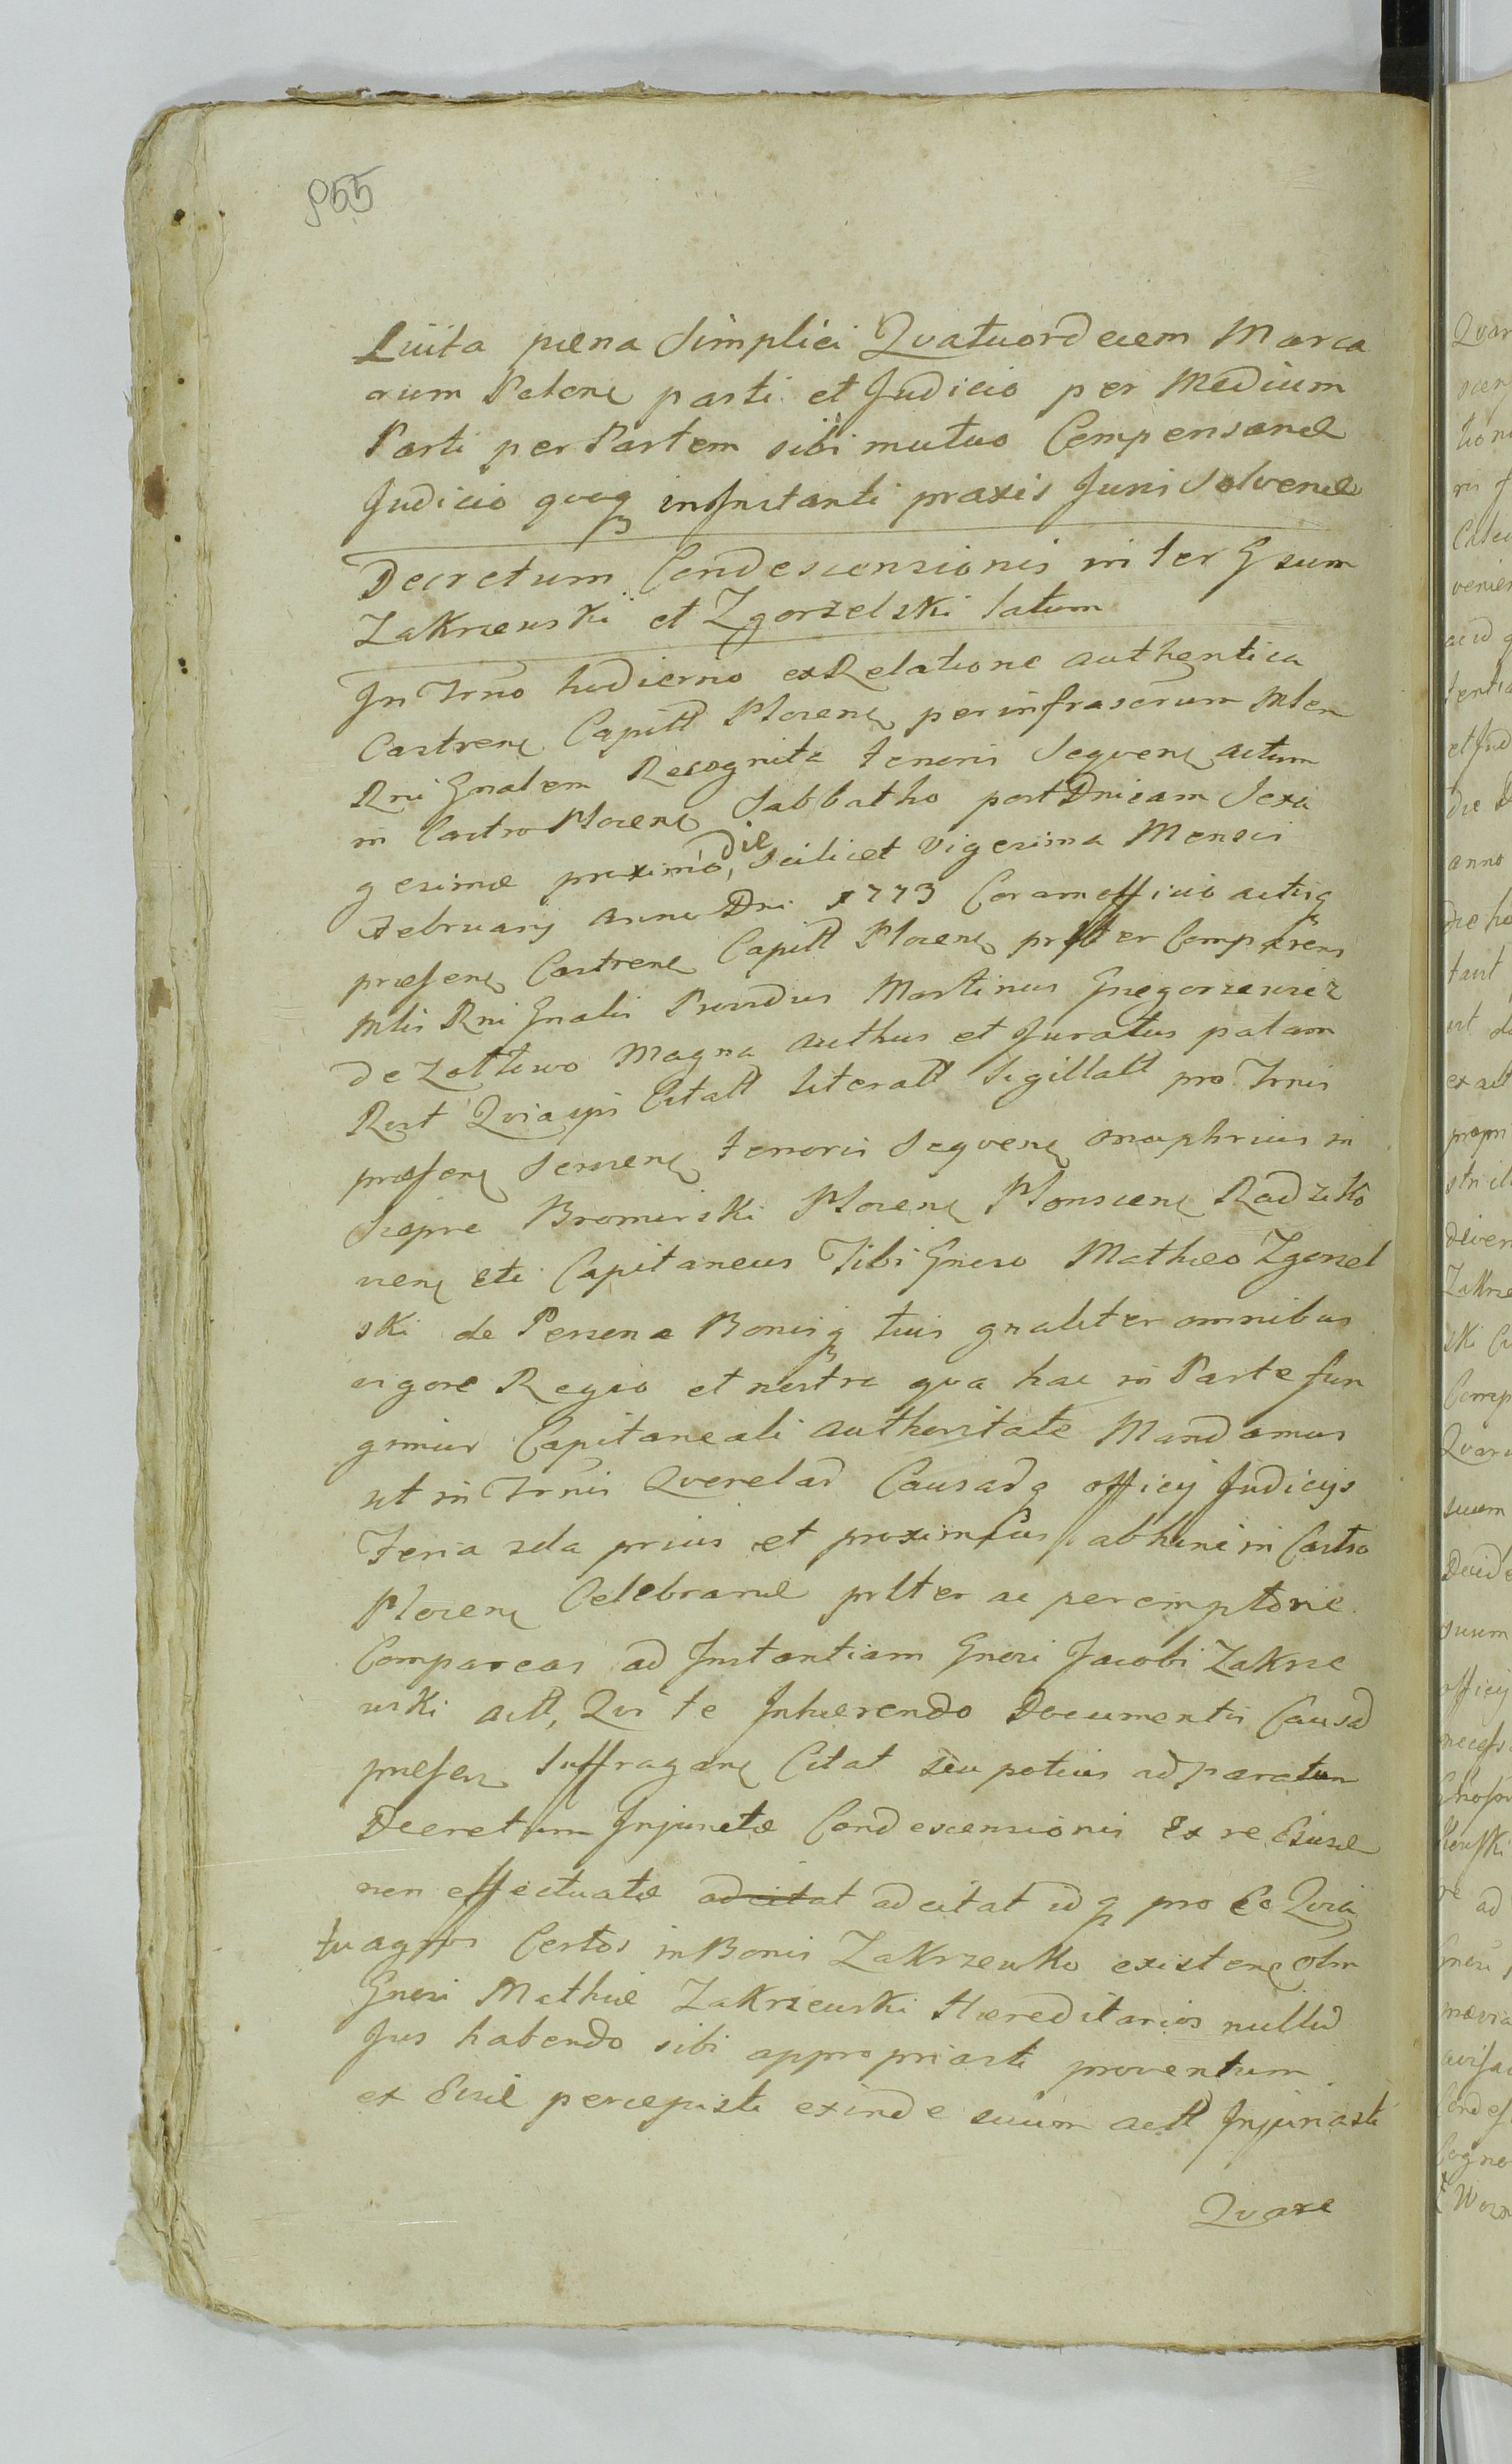 955
Luita pæna Simplici Qvatuordecem Marca
rum Polonę parti et Judicio per Medium
Parti per Partem sibi mutuo Compensand
Judicio qvoqꝫ in Instanti praxis Juris Solvend
Decretum Condescensionis inter Gsum
Zakrzewski et Zgorzelski latum
In Trno hodierno ex Relatione authentica
Castrenę Capitt Płocenę per infrascrum Mlem
Rni Gnalem Recognita tenoris Seqvenę actum
in Castro Płocenę Sabbatho post Dnicam Sexa
gesimæ proximo, die Scilicet Vigesima Mensis
February anno Dni 1773 Coram officio actisqꝫ
præsenę Castrenę Capitt Płocenę prslter Comparens
Mlis Rni Gnalis Providus Martinus Grzegorzewicz
de Magna authus et Juratus palam
Rest Qvia ipse Citatt literatt Sigillatt pro Trnis
præsenę Servienę tenoris Seqvenę Onuphrius in
Siepre Bromirski Płocenę Płonscenę Radziko
vienę Etc Capitaneus Tibi Gneso Matheo Zgorzel
ski de Persona Bonisqꝫ tuis gnaliter omnibus
vigore Regio et nostra qva hac in Parte fun
gimur Capitaneali authoritate Mandamus
ut in Trnis Qverelas Causasqꝫ officy Judicys
Feria 2da prius et proximius abhinc in Castro
Płocenę Celebrand prslter ac peremptorie
Compareas ad Instantiam Gnesi Jacobi Zakrze
wski actt, Qvi te Inhærendo Documentis Causæ
præsenę Suffraganę Citat seu potius ad paratum
Decretum Injunctæ Condescensionis Ex re Ejusd
non effectuatæ adcitat adcitat idqꝫ pro Eo Qvia
tu agros Certos in Bonis Zakrzewko existenę olim
Gnesi Mathiæ Zakrzewski Hæreditarios nullum
Jus habendo sibi appropriasti proventum
ex Eisd percepisti exinde suum actt Injuriasti
Qvare